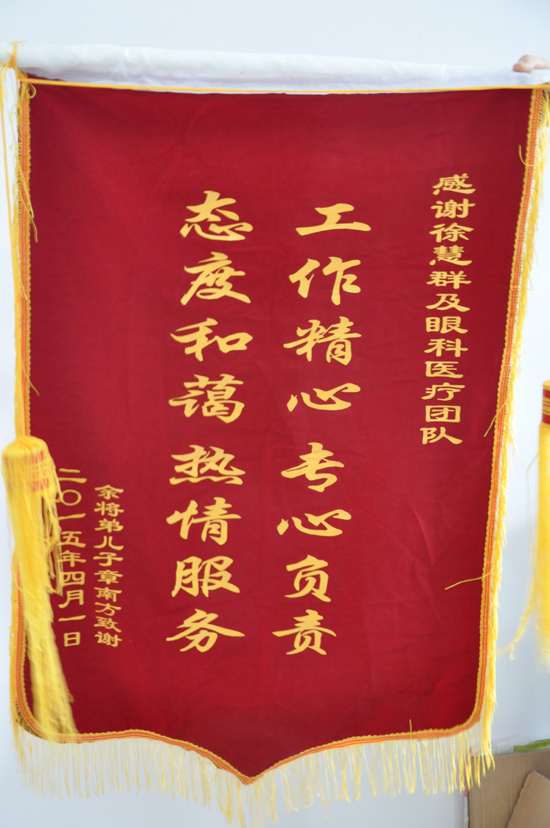 感谢徐慧群及眼科医疗团队
工作精心专心负责
态度和蔼热情服务
余将弟儿子章南方致谢
二〇一五年四月一日